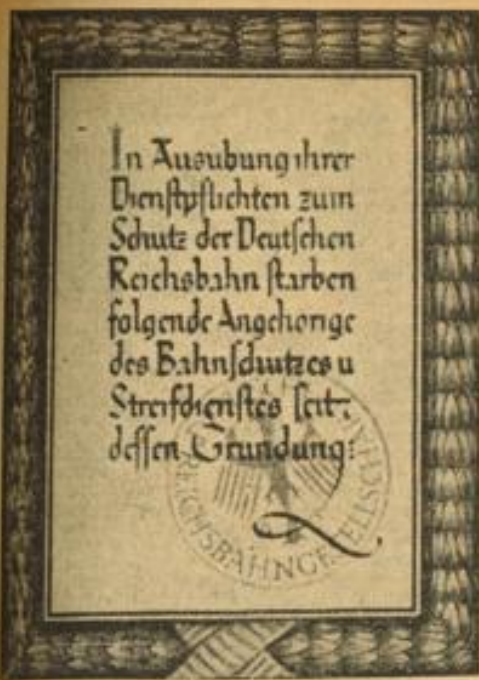 In Ausübung ihrer
Dienstpflichten zum
Schutz der Deutschen
Reichsbahn starben
folgende Angehörige
des Bahnschutzes u
Streifdienstes seit
dessen Gründung:
REICHSBAHNGESELLSCHAFT